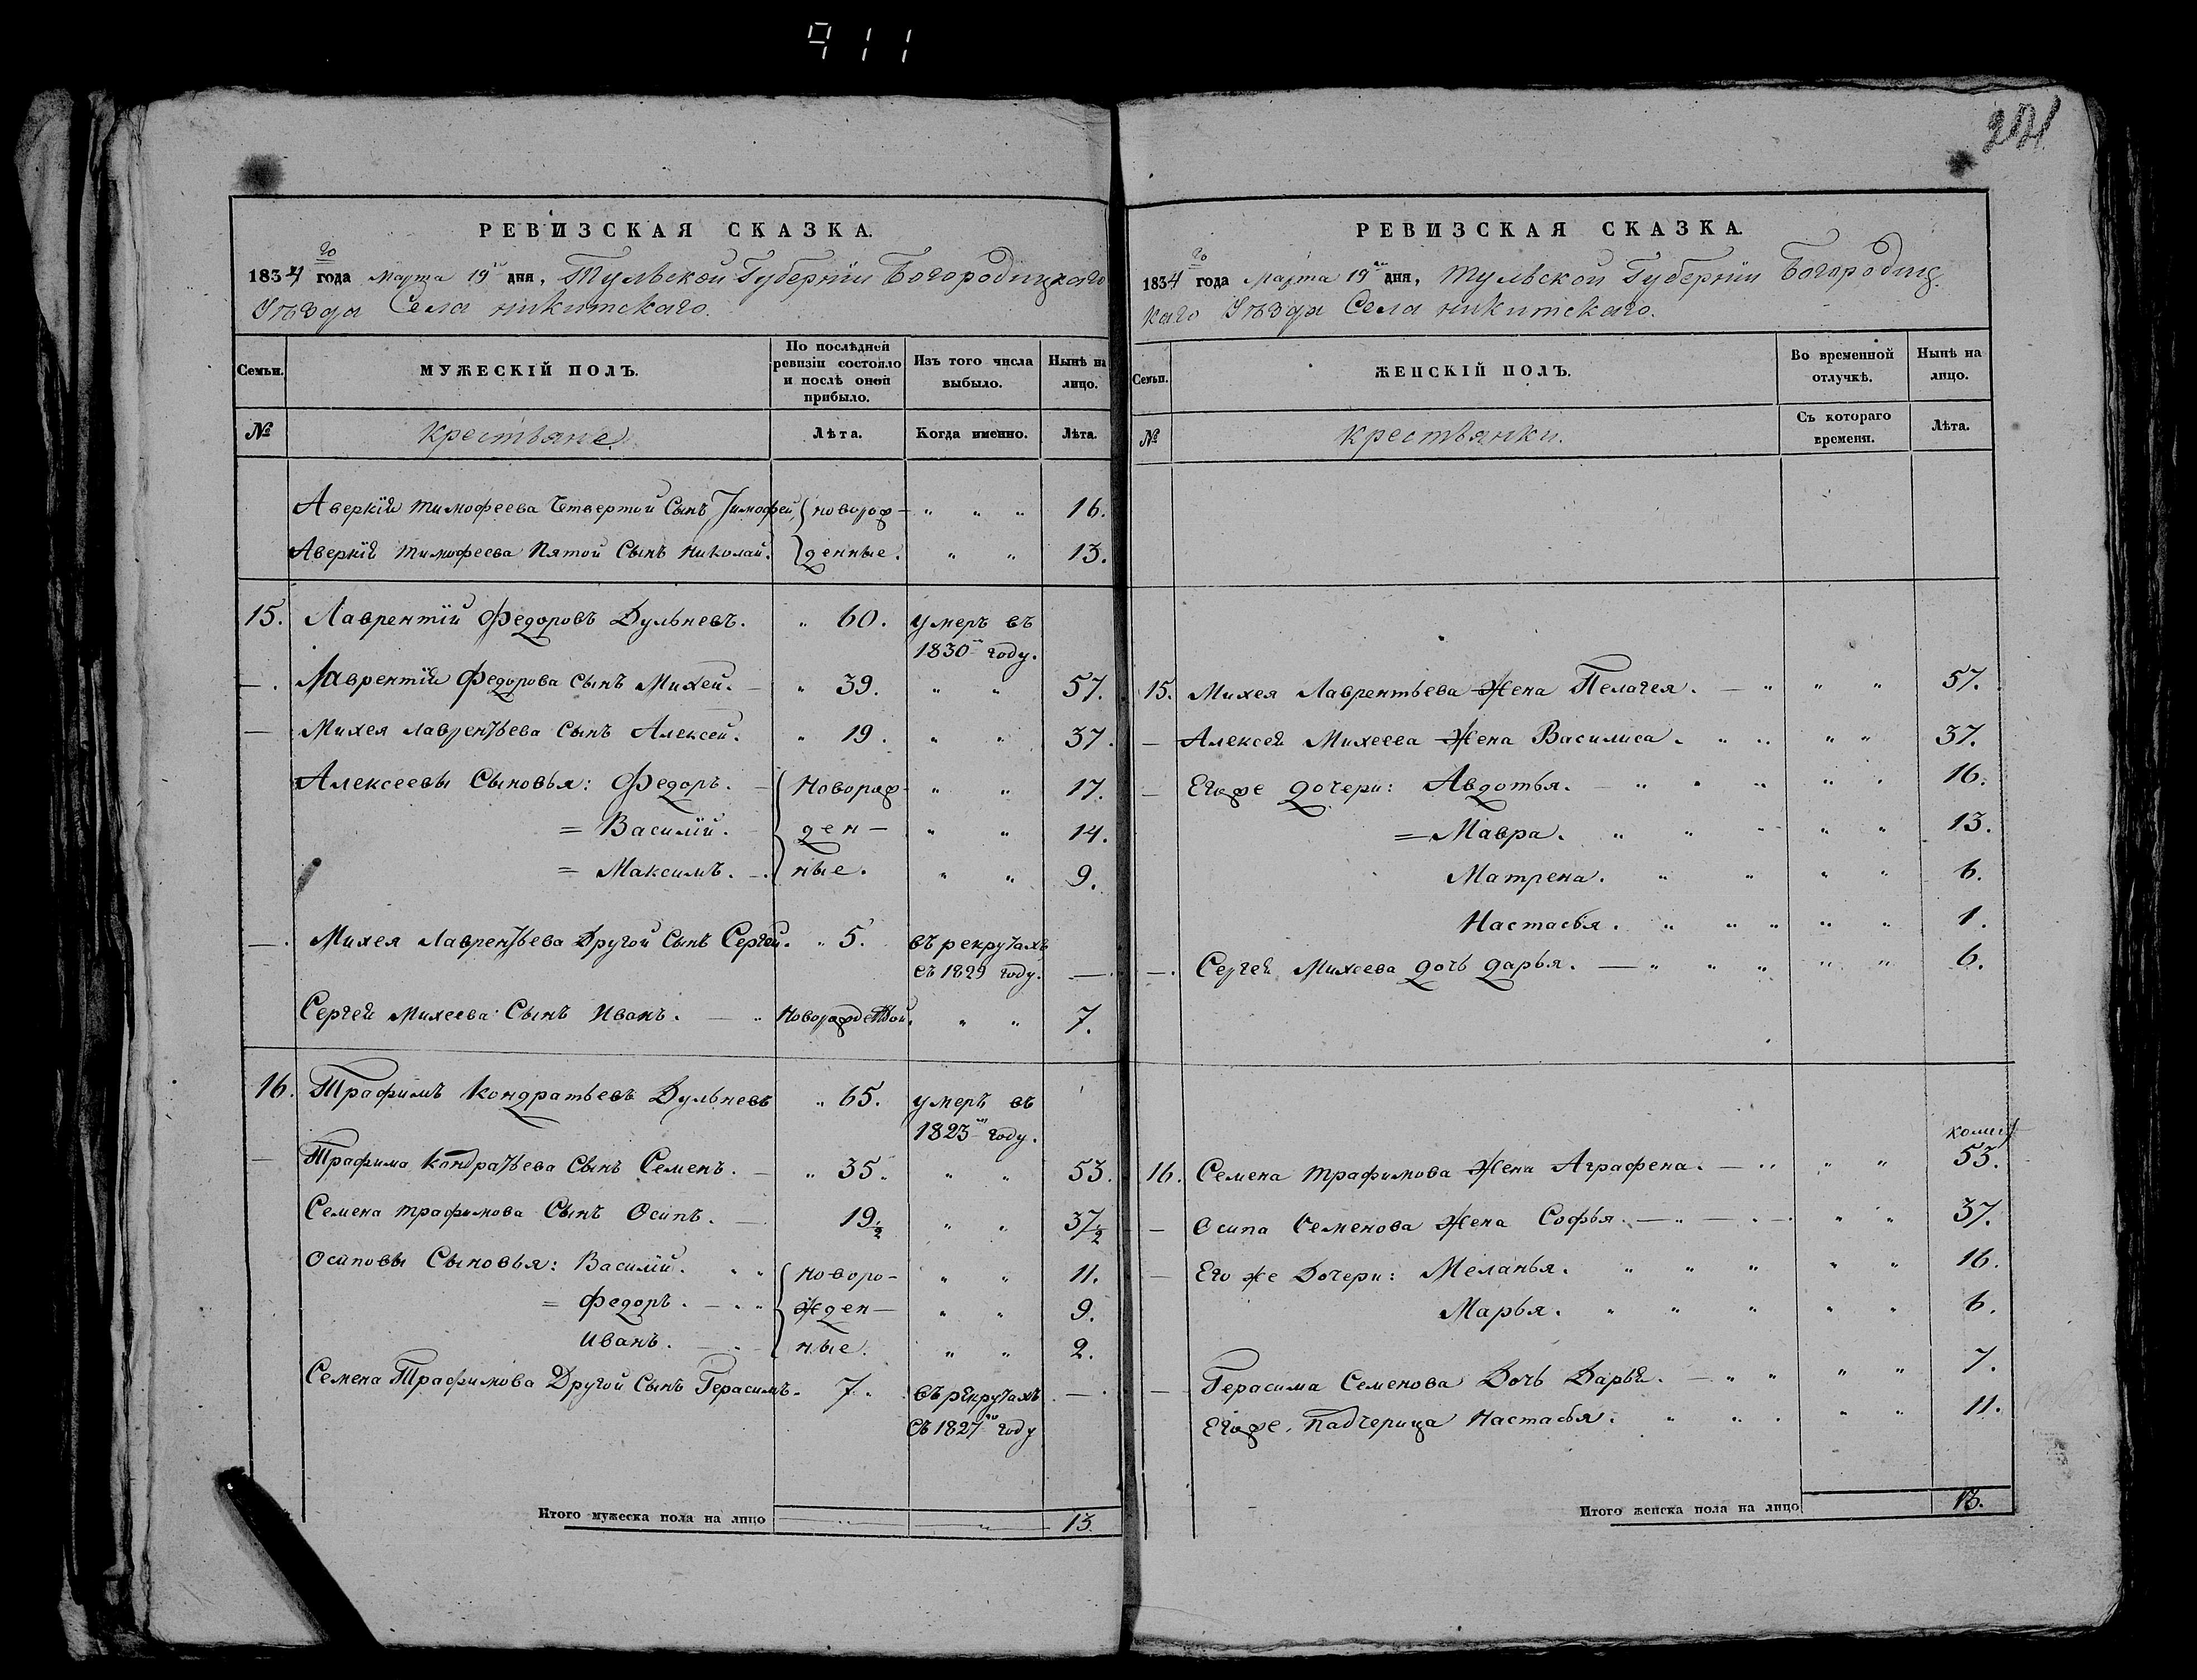 911
РЕВИЗСКАЯ СКАЗКА.
1834 го года марта 19 дня, Тульской Губернии Богородицкаго
Уѣзда Села никитскаго.
Семьи.
МУЖЕСКІЙ ПОЛЪ.
По послѣдней ревизіи состояло и послѣ оной прибыло.
Изъ того числа выбыло.
Нынѣ на лицо.
№
крестьяне.
Лѣта.
Когда именно.
Лѣта.
Аверкій тимофеева Четвертой Сынъ Тимофей, новорож- " " " 16.
Аверкій тимофеева Пятой Сынъ николай. денные. " " 13.
15. Лаврентій Федоровъ Дульневъ. " 60. умеръ въ
1830 году.
— . Лаврентій Федорова сынъ Михей. — " 39. " " 57.
— Михея лаврентьева сынъ Алексей. " 19. " " 37.
Алексеевы Сыновья: Федоръ. — Новорож- " " 17.
= Василій. ден— " " 14.
= Максимъ. — ные. " " 9.
— . Михея Лаврентьева Другой Сынъ Сергей. " 5. въ рекрутахъ
съ 1829 году. —
Сергей михеева Сынъ Иванъ. — Новорожденной. " " 7.
16. Трафимъ Кондратьевъ Дульневъ " 65. умеръ въ
1823 году.
— Трафима Кондратьева Сынъ Семенъ. — " 35. " " 53.
Семена трафимова Сынъ Осипъ. — 19 1/2 " " 37 1/2
Осиповы Сыновья: Василій. " " новоро- " " 11.
= федоръ. — " " жден— " " 9.
иванъ. — ные. " " 2.
Семена Трафимова Другой Сынъ Герасимъ. 7. въ рекрутахъ — .
съ 1827 го году
Итого мужеска пола на лицо 13.
РЕВИЗСКАЯ СКАЗКА.
1834 го года марта 19 дня, тульской Губерніи Богородиц.
каго Уѣзда Села никитскаго.
Семьи.
ЖЕНСКІЙ ПОЛЪ.
Во временной отлучкѣ.
Нынѣ на лицо.
№
крестьянки.
Съ котораго времени.
Лѣта.
15. Михея Лаврентьева Жена Пелагея. — " " " 57.
— Алексей Михеева Жена Василиса. " " " " 37.
— Егоже дочери: Авдотья. — " " " " 16.
= Мавра. " " " " " 13.
Матрена. " " " " 6.
Настасья. " " " " " 1.
— . Сергей Михеева дочь дарья. — " " " " " 6.
16. Семена трафимова Жена Аграфена. — " " " 53.
— Осипа Семенова Жена Софья. — " — " — " " 37.
— Его же Дочери: Меланья. " " " " " 16.
Марья. " " " " " 6.
— Герасима Семенова Дочь Дарья. — " " " " 7.
Егоже, падчерица Настасья. " " " " " 11.
Итого женска пола на лицо 13.